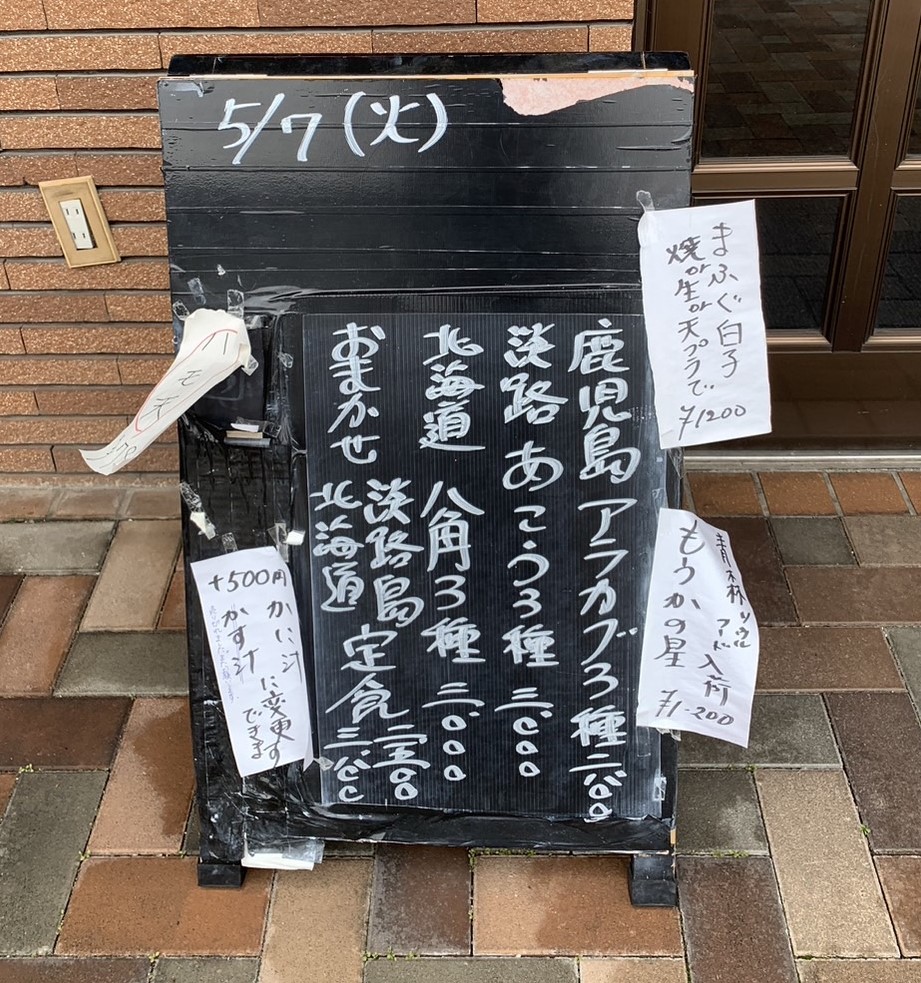 5/7(火)
鹿児島 アラカブ3種 二、六〇〇
淡路 あこう3種 三、〇〇〇
北海道 八角3種 二、〇〇〇
おまかせ
淡路島
北海道
定食
三、〇〇〇
まふぐ白子
焼or生or天プラで
¥1200
青森
入荷
もうかの星
¥1-200
+500円
かに汁
かす汁
に変更す
できます